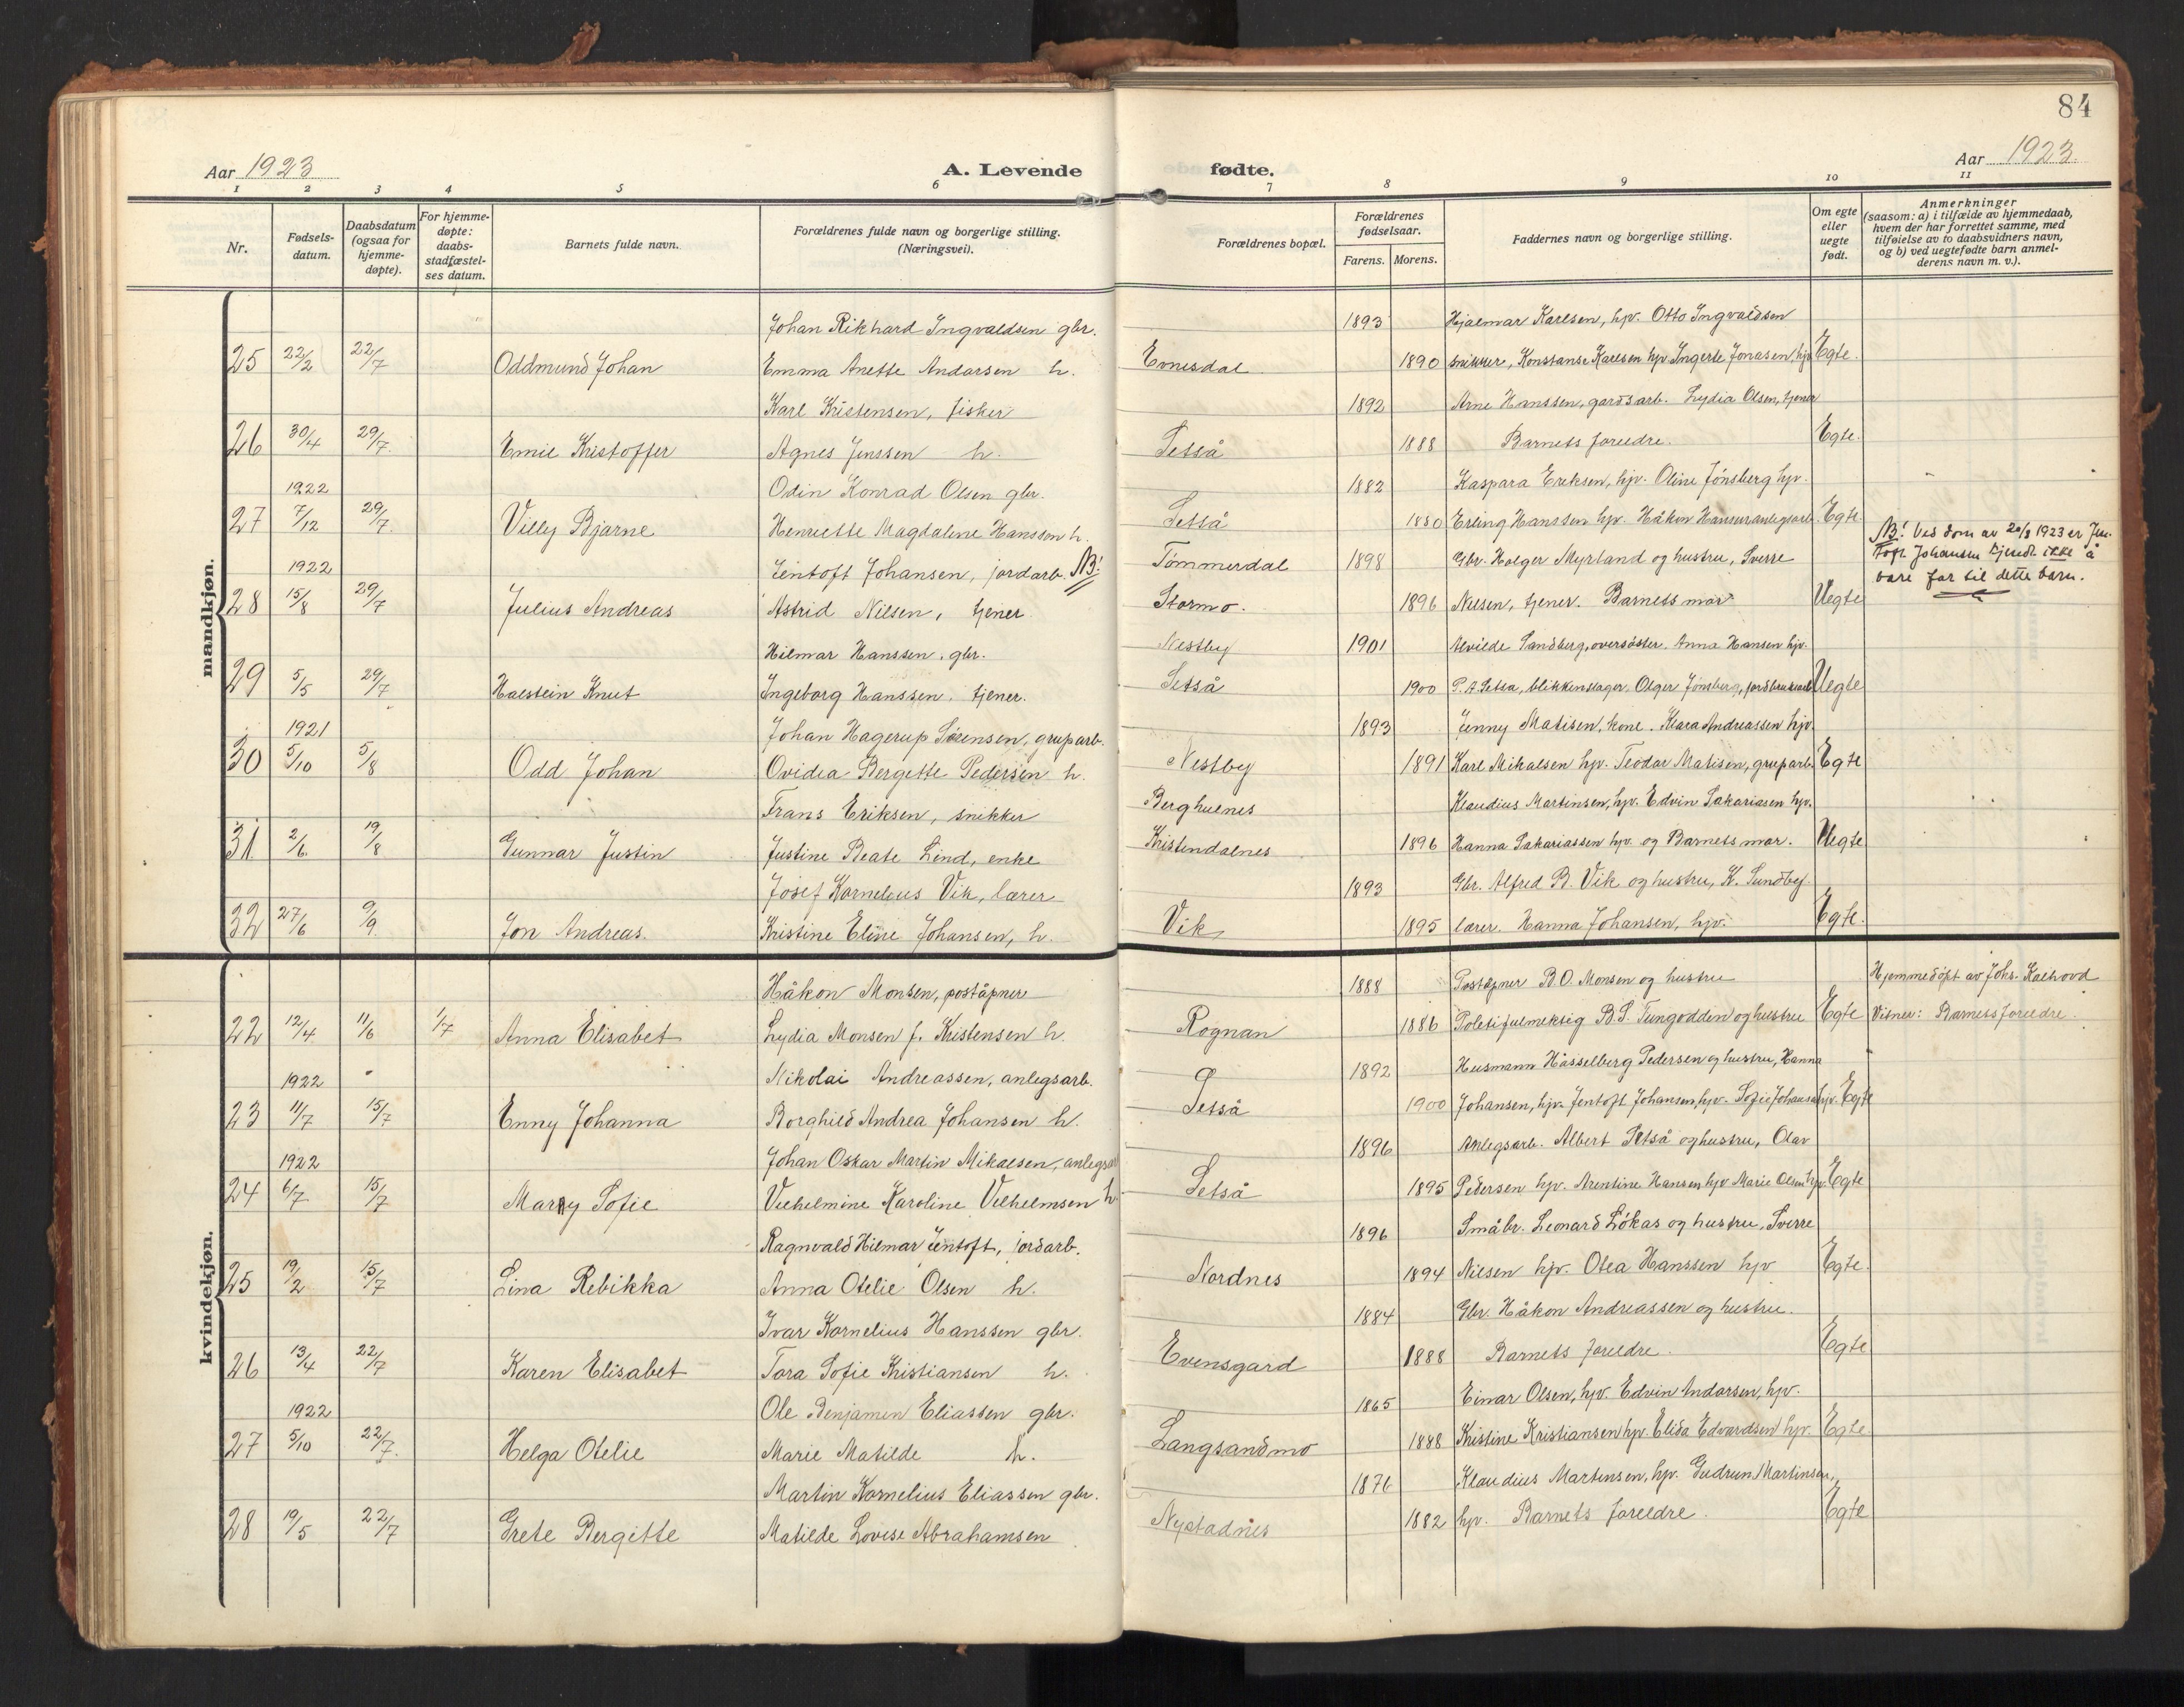 84
Aar 1923
A. Levende fødte.
Aar 1923.
1 2 3 4 5 6 7 8 9 10 11
Nr.
Fødsels-
datum.
Daabsdatum
(ogsaa for
hjemme-
døpte).
For hjemme-
døpte:
daabs-
stadfæstel-
ses datum.
Barnets fulde navn.
Forældrenes fulde navn og borgerlige stilling.
(Næringsvei).
Forældrenes bopæl.
Forældrenes
fødselsaar.
Farens. Morens.
Faddernes navn og borgerlige stilling.
Om egte
eller
uegte
født.
Anmerkninger
(saasom: a) i tilfælde av hjemmedaab,
hvem der har forrettet samme, med
tilføielse av to daabsvidners navn,
og b) ved uegtefødte barn anmel-
derens navn m. v.).
mandkjøn.
Johan Rikhard Ingvaldsen gbr. 1893 Hjalmar Karlsen, hjv. Otto Ingvaldsen
25 22/2 22/7 Oddmund Johan Emma Anette Andorsen h. Evnesdal 1890 snikker, Konstanse Karlsen hjv. Ingerte Jonasen, hjv Egte.
Karl Kristensen, fisker 1892 Arne Hanssen, gardsarb. Lydia Olsen, tjener
26 30/4 29/7. Emil Kristoffer Agnes Jenssen h. Setså 1888 Barnets foreldre. Egte.
1922 Odin Konrad Olsen gbr. 1882 Kaspara Eriksen, hjv. Oline Jönsberg hjv.
27 7/12 29/7. Villy Bjarne Henriette Magdalene Hanssen h. Setså 1880 Erling Hanssen hjv. Håkon Hansen anlegsarb. Egte
1922 Jentoft Johansen, jordarb. NB! Tömmerdal 1898 Gbr. Holger Myrland og hustru, Sverre
NB! Ved dom av 20/3 1923 er Jen-
toft Johansen kjendt ikke å
være far til dette barn.
28 15/8 29/7 Julius Andreas Astrid Nilsen, tjener Stormo. 1896 Nilsen, tjener. Barnets mor Uegte
Hilmar Hanssen, gbr. Nestby 1901 Alvilde Sandberg, oversöster. Anna Hansen hjv.
29 5/5 29/7 Halstein Knut Ingeborg Hanssen, tjener. Setså 1900 P. A. Setså, blikkenslager. Olger Jönsberg, jordbruksarb Uegte
1921 Johan Hagerup Sörensen, gruparb. 1893 Jenny Matisen, kone. Klara Andreassen hjv.
30 5/10 5/8 Odd Johan Ovidia Bergette Pedersen h. Nestby 1891 Karl Mikalsen hjv. Teodar Matisen, gruparb. Egte
Frans Eriksen, snikker Berghulnes Klaudius Martinsen, hjv. Edvin Sakariasen hjv.
31 2/6 19/8 Gunnar Justin Justine Beate Lind, enke Kristendalnes 1896 Hanna Sakariassen hjv. og Barnets mor. Uegte
Josef Kornelius Vik, lærer 1893 Gbr. Alfred B. Vik og hustru, K. Sundby.
32 27/6 9/9 Jon Andreas. Kristine Eline Johansen, h. Vik 1895 lærer. Hanna Johansen, hjv. Egte.
kvindekjøn.
Håkon Monsen, poståpner 1888 Poståpner B. O. Monsen og hustru Hjemmedöpt av Johs. Kalhovd
22 12/4 11/6 1/7 Anna Elisabet Lydia Monsen f. Kristensen h. Rognan 1886 Politifulmektig B. S. Tungodden og hustru Egte Vitner: Barnets foreldre.
1922 Nikolai Andreassen, anlegsarb. 1892 Husmann Hasselberg Pedersen og hustru, Hanna
23 11/7 15/7 Enny Johanna Borghild Andrea Johansen h. Setså 1900 Johansen, hjv. Jentoft Johansen, hjv. Sofie Johansen hjv. Egte
1922 Johan Oskar Martin Mikalsen, anlegsarb 1896 Anlegsarb. Albert Setså og hustru, Olav
24 6/7 15/7 Marry Sofie Vilhelmine Karoline Vilhelmsen h Setså 1895 Pedersen hjv. Arentine Hansen hjv Marie Olsen hjv. Egte
Ragnvald Hilmar Jentoft, jordarb. 1896 Småbr. Leonard Lökås og hustru, Sverre
25 19/2 15/7 Lina Rebikka Anna Otelie Olsen h. Nordnes 1894 Nilsen hjv. Olea Hanssen hjv Egte.
Ivar Kornelius Hanssen gbr. 1884 Gbr. Håkon Andreassen og hustru.
26 13/4 22/7 Karen Elisabet Tora Sofie Kristiansen h. Evensgard 1888 Barnets foreldre. Egte
1922 Ole Benjamen Eliassen gbr. 1865 Einar Olsen, hjv. Edvin Andorsen, hjv.
27 5/10 22/7. Helga Otelie Marie Matilde h. Langsandmo 1888 Kristine Kristiansen hjv. Elida Edvardsen hjv. Egte
Martin Kornelius Eliassen gbr. 1876 Klaudius Martinsen, hjv. Gudrun Martinsen,
28 19/5 22/7 Grete Bergitte Matilde Lovise Abrahamsen Nystadnes 1882 hjv. Barnets foreldre. Egte